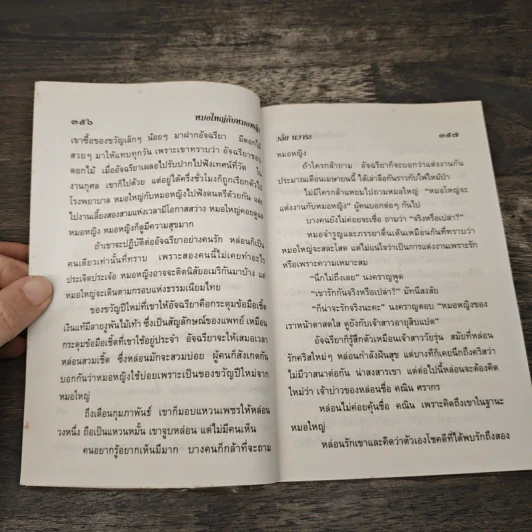 ๓๕๖ หมอใหญ่กับหมอหญิง
เขาซื้อของขวัญเล็กๆ น้อยๆ มาฝากอัจฉรียา มีดอกไม้
สวยๆ มาให้แทบทุกวัน เพราะเขาทราบว่า อัจฉรียาชอบ
ดอกไม้ เมื่ออัจฉรียาเผลอไปรับปากไปฟังเทศน์ที่วัด ใน
งานกุศล เขาก็ไปด้วย แต่อยู่ได้ครึ่งชั่วโมงก็ถูกเรียกตัวไป
โรงพยาบาล หมอใหญ่กับหมอหญิงไปฟังดนตรีด้วยกัน และ
ไปงานเลี้ยงสองสามแห่งเวลามีโอกาสสว่าง หมอใหญ่คอยดูแล
หมอหญิง หมอหญิงก็ดูมีความสุขมาก
ถ้าเขาจะปฏิบัติต่ออัจฉรียาอย่างคนรัก หล่อนก็เป็น
คนเดียวเท่านั้นที่ทราบ เพราะสองคนนี้ไม่เคยทำอะไร
ประเจิดประเจ้อ หมอหญิงอาจจะติดนิสัยอเมริกันมาบ้าง แต่
หมอใหญ่จะเดินตามกรอบแห่งธรรมเนียมไทย
ของขวัญปีใหม่ที่เขาให้อัจฉรียาคือกระดุมข้อมือเชิ้ต
เงินแท้มีลายงูพันไม้เท้า ซึ่งเป็นสัญลักษณ์ของแพทย์ เหมือน
กระดุมข้อมือเชิ้ตที่เขาใช้อยู่ประจำ อัจฉรียาจะให้เสมอเวลา
หล่อนสวมเชิ้ต ซึ่งหล่อนมักจะสวมบ่อย ผู้คนก็สังเกตกัน
บอกกันว่าหมอหญิงใช้บ่อยเพราะเป็นของขวัญปีใหม่จาก
หมอใหญ่
ถึงเดือนกุมภาพันธ์ เขาก็มอบแหวนเพชรให้หล่อน
วงหนึ่ง ถือเป็นแหวนหมั้น เขาจูบหล่อน แต่ไม่มีคนเห็น
คนอยากรู้อยากเห็นมีมาก บางคนก็กล้าที่จะถาม
วลัย นวาระ ๓๕๗
หมอหญิง
ถ้าใครกล้าถาม อัจฉรียาก็จะบอกว่าแต่งงานกัน
ประมาณเดือนเมษายนนี้ ได้เล่าลือกันราวกับไฟไหม้ป่า
ไม่มีใครกล้าแหยมไปถามหมอใหญ่ “หมอใหญ่จะ
แต่งงานกับหมอหญิง” ผู้คนบอกต่อๆ กันไป
บางคนยังไม่ค่อยจะเชื่อ ถามว่า “จริงหรือเปล่า?”
หมอจำรูญและภรรยาตื่นเต้นเหมือนกันที่ทราบว่า
หมอใหญ่จะสละโสด แต่ไม่แน่ใจว่าเป็นการแต่งงานเพราะรัก
หรือเพราะความเหมาะสม
“นึกไม่ถึงเลย” นงคราญพูด
“เขารักกันจริงหรือเปล่า?” มัทนีสงสัย
“ก็น่าจะรักจริงนะคะ” นงคราญตอบ “หมอหญิงของ
เราหน้าตาสดใส ดูยังกับเจ้าสาวอายุสิบแปด”
อัจฉรียาก็รู้สึกตัวเหมือนเจ้าสาววัยรุ่น สมัยที่หล่อน
รักคริสใหม่ๆ หล่อนกำลังฝันสุข แต่บางทีก็เคยนึกถึงคริสว่า
ไม่มีวาสนาต่อกัน น่าสงสารเขา แต่ต่อไปนี้หล่อนจะต้องคิด
ใหม่ว่า เจ้าบ่าวของหล่อนชื่อ คณิน ศรากร
หล่อนไม่ค่อยคุ้นชื่อ คณิน เพราะคิดถึงเขาในฐานะ
หมอใหญ่
หล่อนรักเขาและคิดว่าตัวเองโชคดีที่ได้พบรักถึงสอง